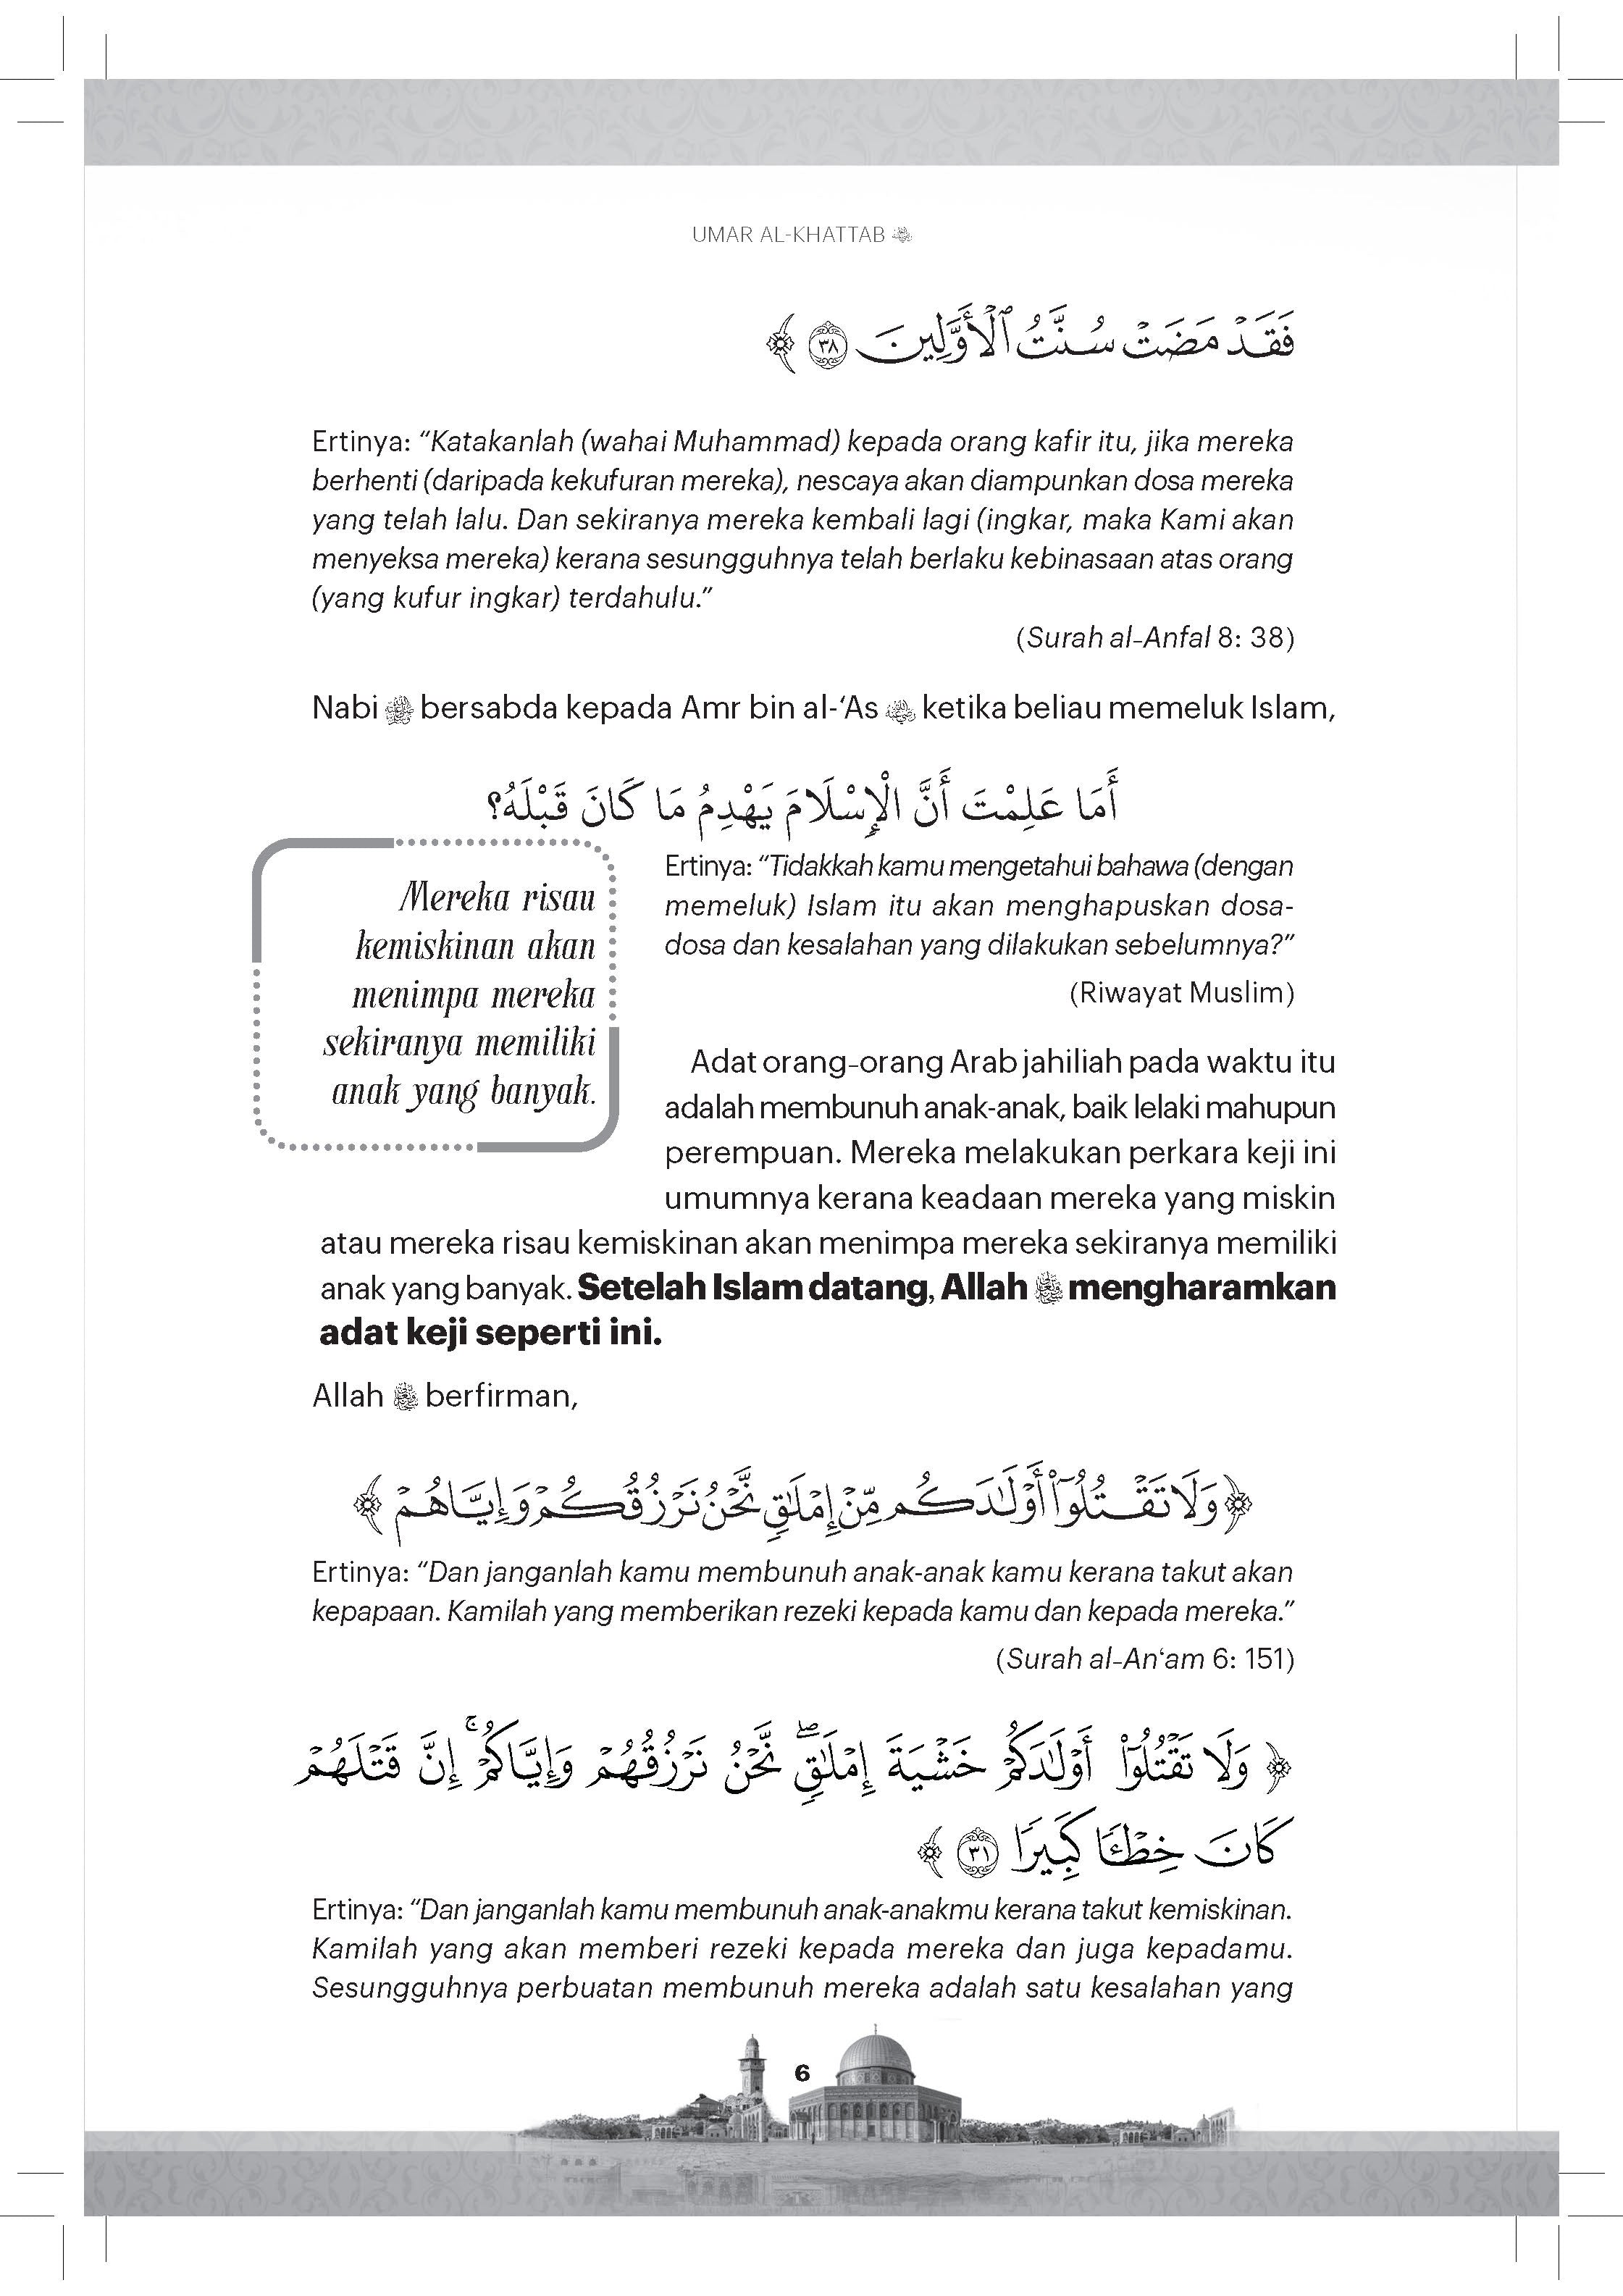 UMAR AL-KHATTAB
فَقَدْ مَضَتْ سُنَّتُ ٱلْأَوَّلِينَ ٣٨ ﴾
Ertinya: “Katakanlah (wahai Muhammad) kepada orang kafir itu, jika mereka
berhenti (daripada kekufuran mereka), nescaya akan diampunkan dosa mereka
yang telah lalu. Dan sekiranya mereka kembali lagi (ingkar, maka Kami akan
menyeksa mereka) kerana sesungguhnya telah berlaku kebinasaan atas orang
(yang kufur ingkar) terdahulu.”
(Surah al-Anfal 8: 38)
Nabi ﷺ bersabda kepada Amr bin al-‘As ketika beliau memeluk Islam,
أَمَا عَلِمْتَ أَنَّ الْإِسْلَامَ يَهْدِمُ مَا كَانَ قَبْلَهُ؟
Mereka risau
kemiskinan akan
menimpa mereka
sekiranya memiliki
anak yang banyak.
Ertinya: “Tidakkah kamu mengetahui bahawa (dengan
memeluk) Islam itu akan menghapuskan dosa-
dosa dan kesalahan yang dilakukan sebelumnya?”
(Riwayat Muslim)
Adat orang-orang Arab jahiliah pada waktu itu
adalah membunuh anak-anak, baik lelaki mahupun
perempuan. Mereka melakukan perkara keji ini
umumnya kerana keadaan mereka yang miskin
atau mereka risau kemiskinan akan menimpa mereka sekiranya memiliki
anak yang banyak. Setelah Islam datang, Allah mengharamkan
adat keji seperti ini.
Allah berfirman,
﴿ وَلَا تَقْتُلُوٓا۟ أَوْلَـٰدَكُم مِّنْ إِمْلَـٰقٍ نَّحْنُ نَرْزُقُكُمْ وَإِيَّاهُمْ ﴾
Ertinya: “Dan janganlah kamu membunuh anak-anak kamu kerana takut akan
kepapaan. Kamilah yang memberikan rezeki kepada kamu dan kepada mereka.”
(Surah al-An‘am 6: 151)
﴿ وَلَا تَقْتُلُوٓا۟ أَوْلَـٰدَكُمْ خَشْيَةَ إِمْلَـٰقٍ ۖ نَّحْنُ نَرْزُقُهُمْ وَإِيَّاكُمْ ۚ إِنَّ قَتْلَهُمْ
كَانَ خِطْـًٔا كَبِيرًا ٣١ ﴾
Ertinya: “Dan janganlah kamu membunuh anak-anakmu kerana takut kemiskinan.
Kamilah yang akan memberi rezeki kepada mereka dan juga kepadamu.
Sesungguhnya perbuatan membunuh mereka adalah satu kesalahan yang
6